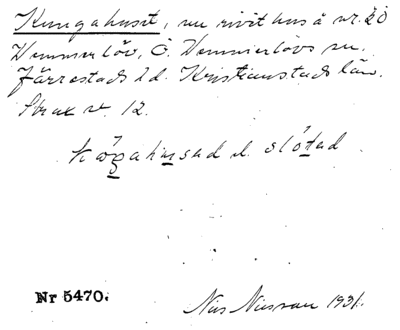 Kungahuset, nu rivit hus å nr. 20
Hemmerlöv, Ö. Hemmerlövs sn.
Järrestads hd. Kristianstads län.
Strax v. 12.
slòtad
Nr 5470.
Nils Nilsson 1931.